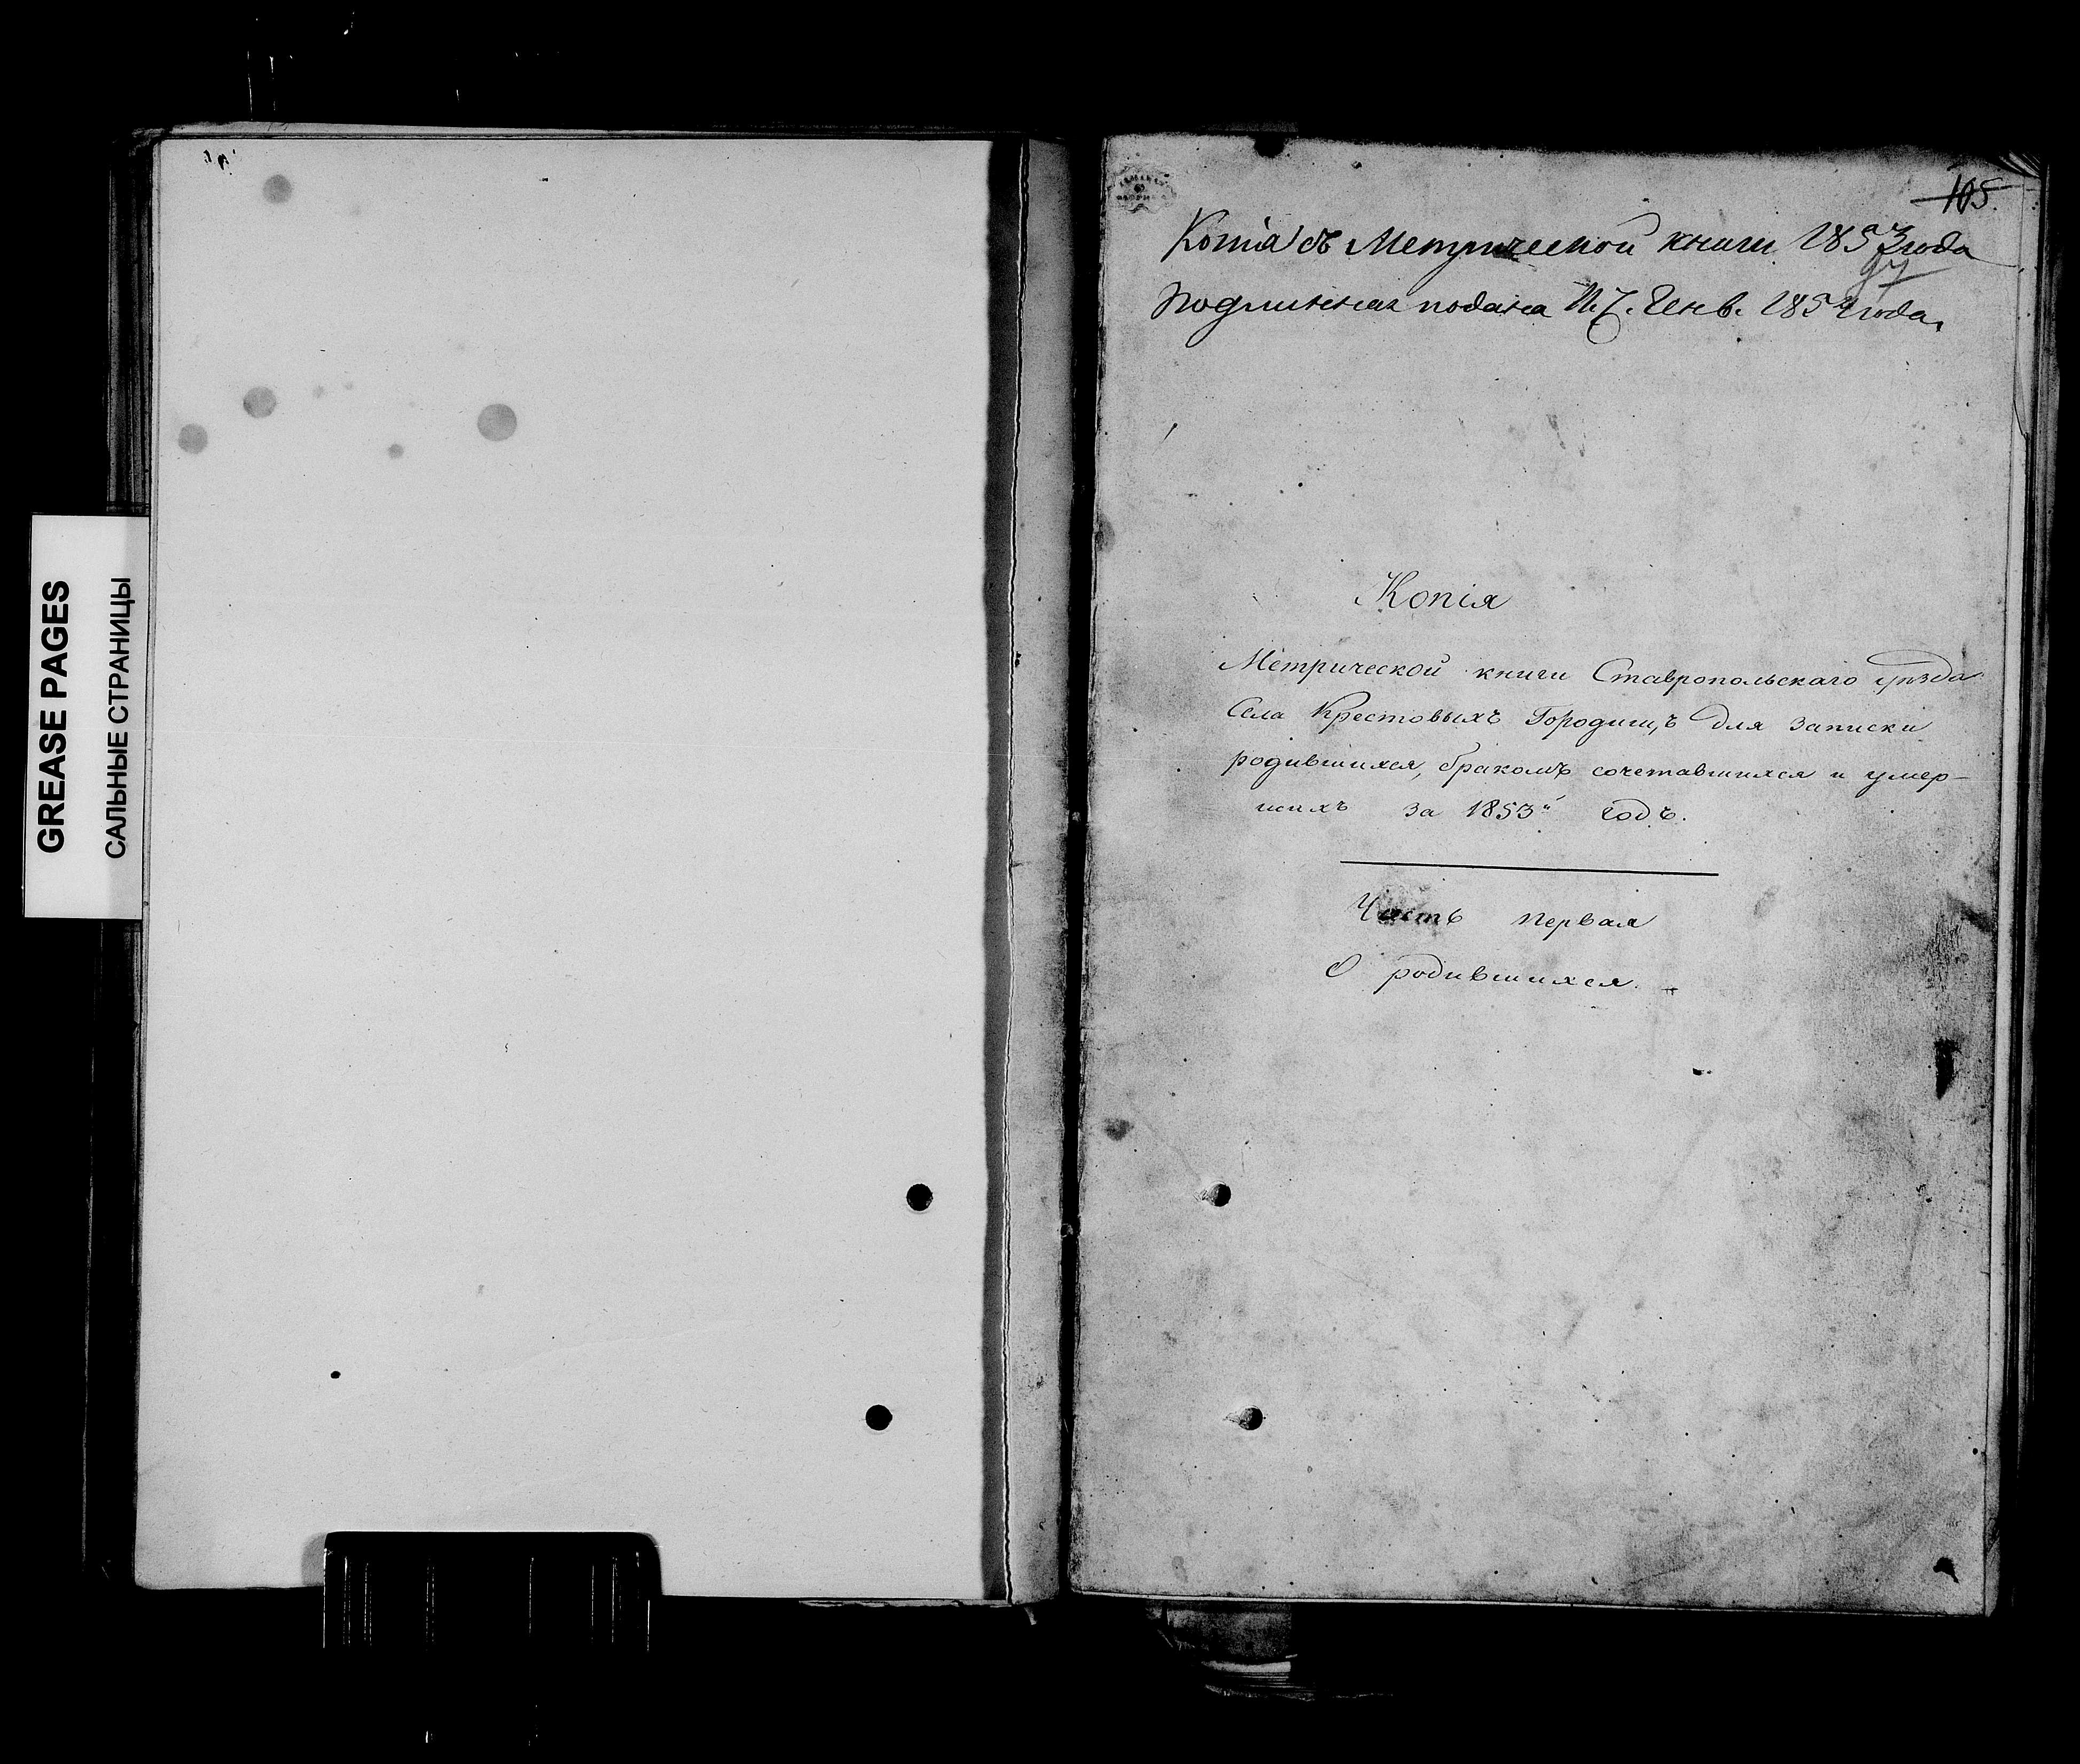 GREASE PAGES
САЛЬНЫЕ СТРАНИЦЫ
105.
Копія съ Метрической книги 1853 года
97
Подлинная подана Генв. 1854 года.
Копія
Метрической книги Ставропольскаго уѣзда
Села Крестовыхъ Городищъ для записки
родившихся, бракомъ сочетавшихся и умер-
шихъ за 1853й годъ.
Часть первая
О родившихся.